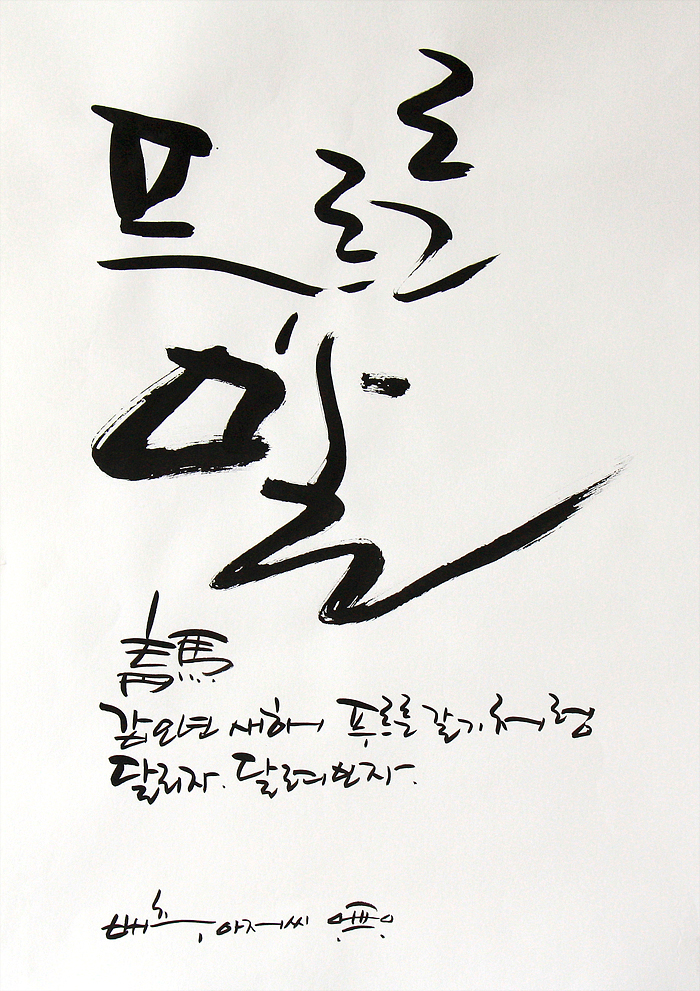 푸르른
말
青馬
갑오년 새해 푸르른 갈기처럼
달리자. 달려보자.
배추아저씨